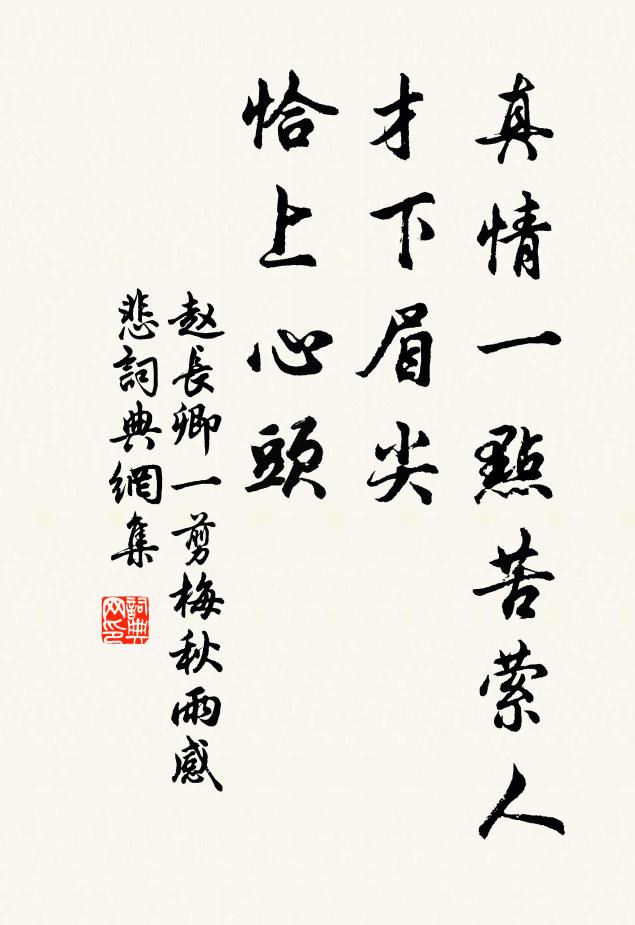 真情一點苦縈人
才下眉尖
恰上心頭
赵長卿一剪梅秋雨感
悲詞典網集
詞典
网印